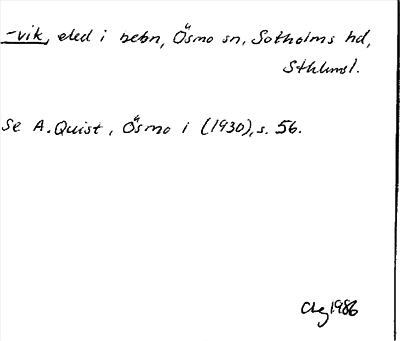 -vik, eled i bebn, Ösmo sn, Sotholms hd,
Sthlmsl.
Se A. Quist, Ösmo i (1930), s. 56.
1986